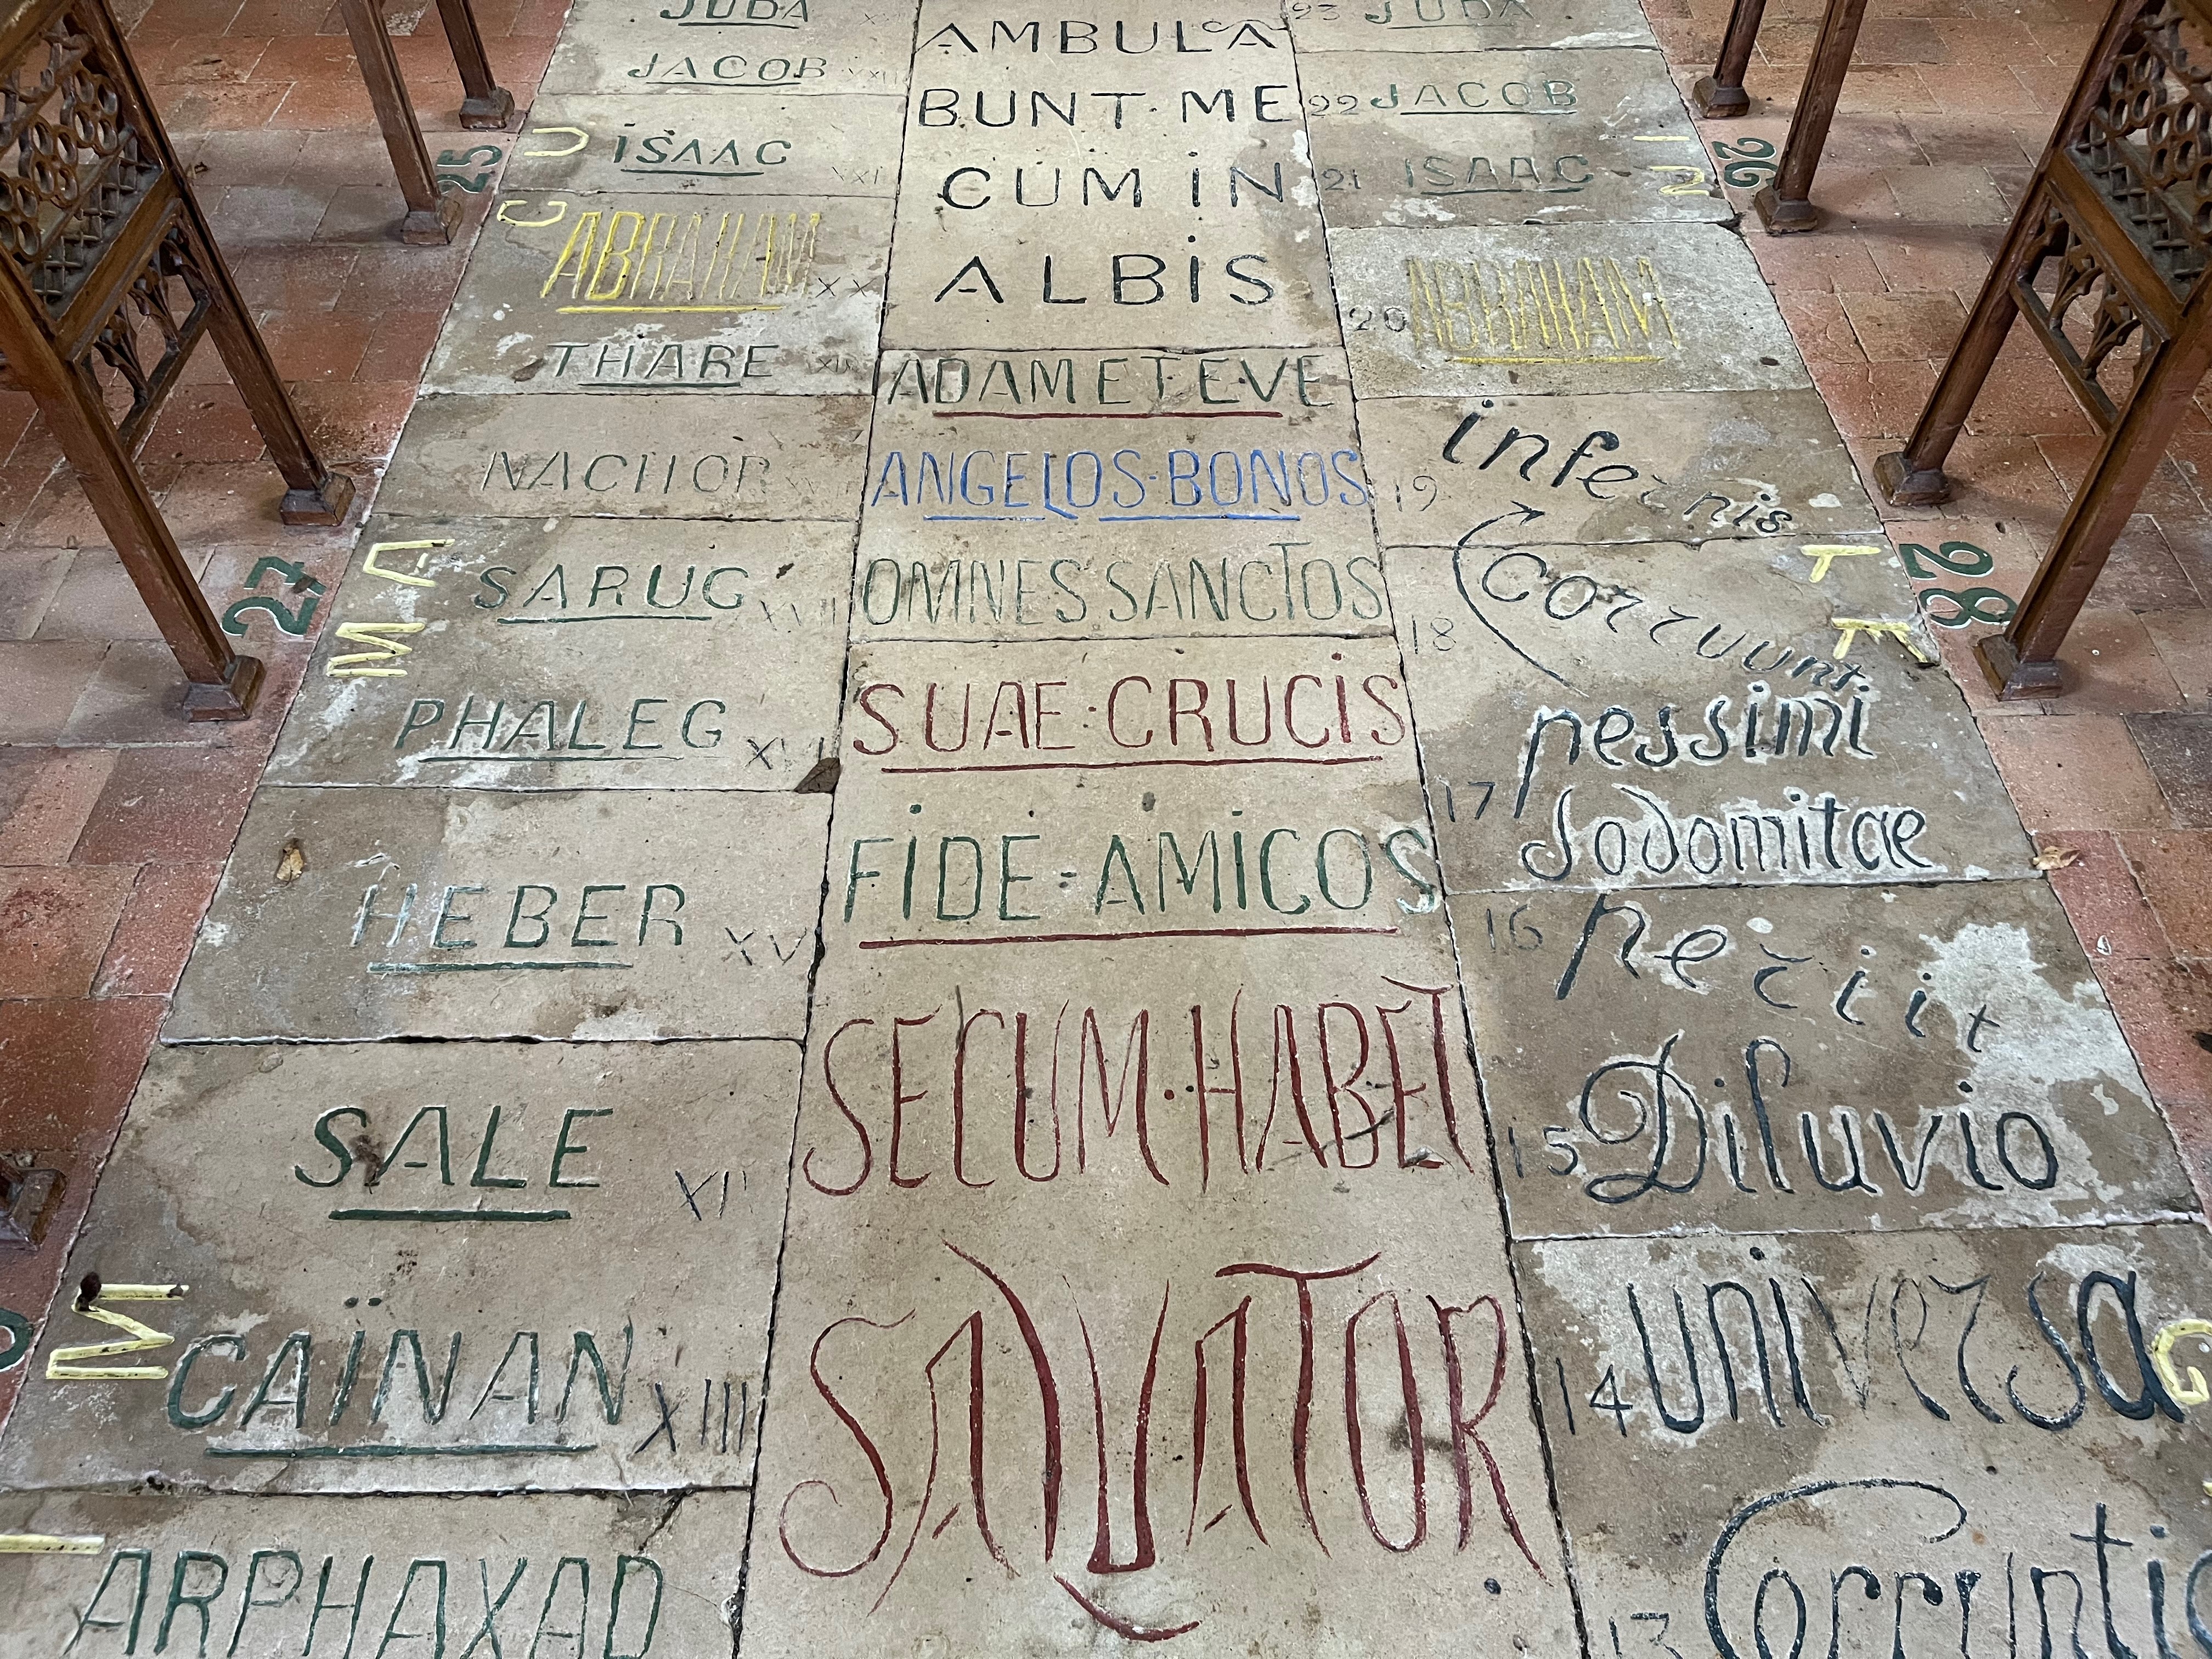 JUDA
JACOB XXII
ISAAC XXI
ABRAHAM XX
THARE XIX
NACHOR
SARUG XVII
PHALEG XVI
HEBER XV
SALE
CAÏNAN XIII
ARPHAXAD
25
27
U
C
M
M
AMBULA
BUNT·ME
CUM IN
ALBIS
ADAM ET EVE
ANGELOS·BONOS
OMNES SANCTOS
SUAE·CRUCIS
FIDE-AMICOS
SECUM·HABET
SALVATOR
23 JUDA
22 JACOB
21 ISAAC
20 ABRAHAM
19 infernis
18 Corruunt
pessimi
17 Sodomitae
16 Periit
15 Diluvio
14 universa
13 Corruptio
I
N
T
E
26
28